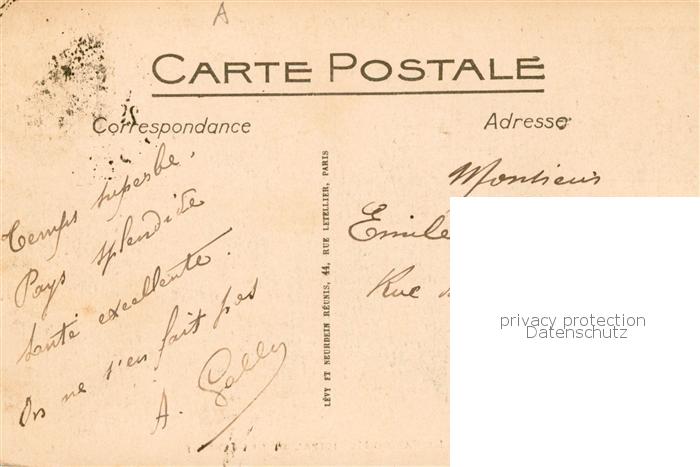 A
CARTE POSTALE
Correspondance
Adresse
Temps superbe,
Pays splendide
Santé excellente.
On ne s'en fait pas
A.
LÉVY ET NEURDEIN RÉUNIS, 44, RUE LETELLIER, PARIS
Monsieur
Emile
Rue
privacy protection
Datenschutz